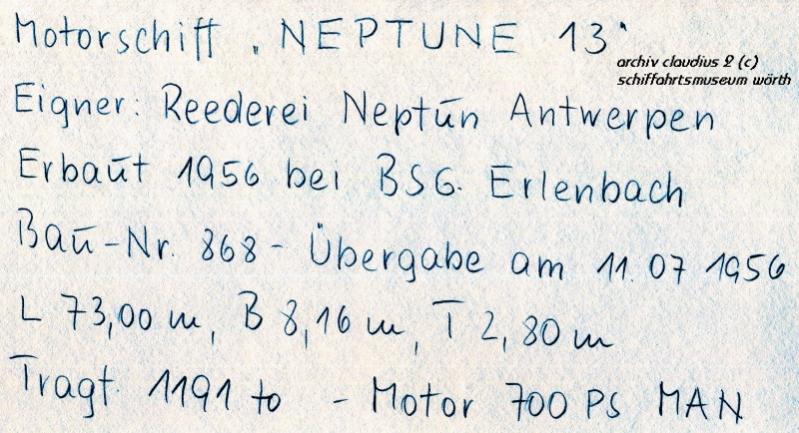 Motorschiff "NEPTUNE 13"
archiv claudius 2 (c)
schiffahrtsmuseum wörth
Eigner: Reederei Neptun Antwerpen
Erbaut 1956 bei BSG. Erlenbach
Bau-Nr. 868 - Übergabe am 11.07 1956
L 73,00 m, B 8,16 m, T 2,80 m
Tragf. 1191 to - Motor 700 PS MAN